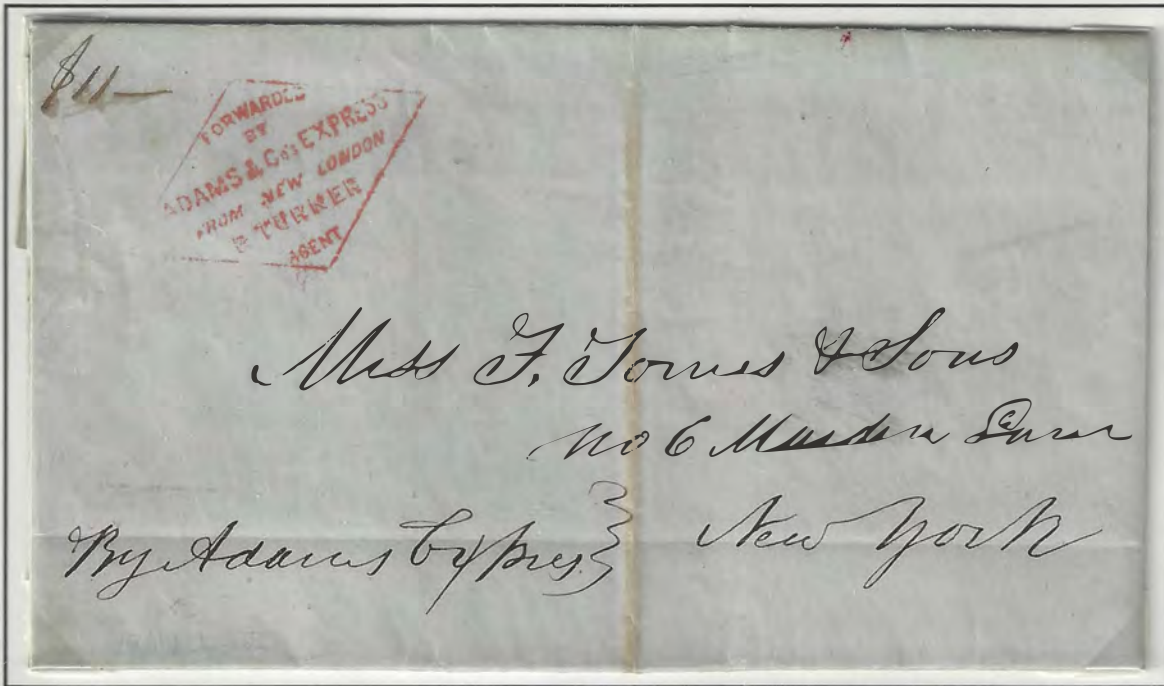 $11—
FORWARDED
BY
ADAMS & Co's EXPRESS
FROM NEW LONDON
TURNER
AGENT
Mess F. Tomes & Sons
No 6 Maiden Lane
New York
By Adams Express